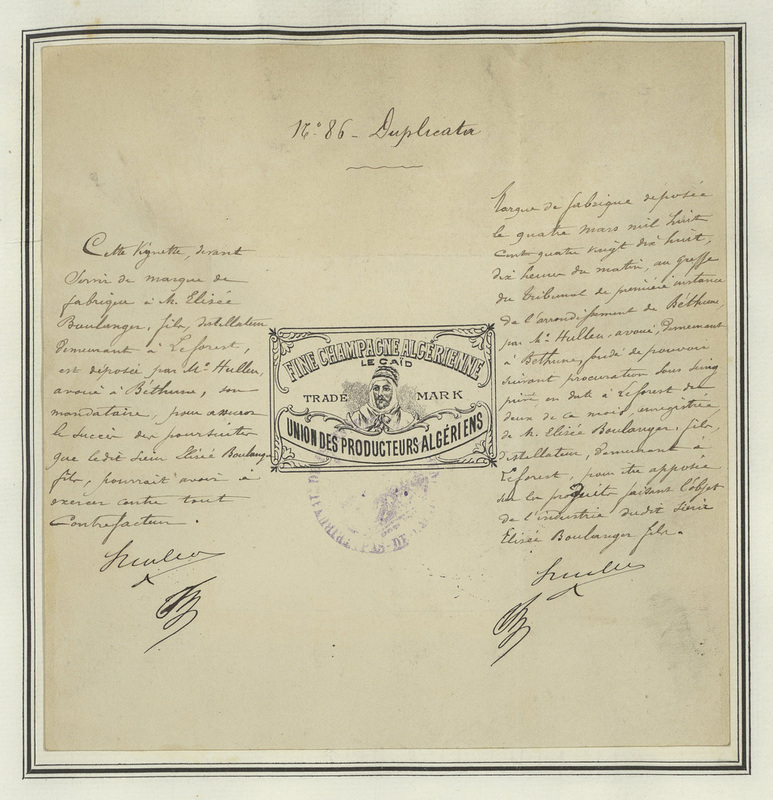 No. 86 - Duplicata
Cette Vignette, devant
Servir de marque de
fabrique à M. Elisée
Boulanger, fils, distillateur
demeurant à Leforest,
est déposée par Me Hulleu,
avoué à Béthune, son
mandataire, pour assurer
le succès des poursuites
que ledit Sieur Elisée Boulanger
fils, pourrait avoir à
exercer contre tout
Contrefacteur.
Hulleu
FINE CHAMPAGNE ALGÉRIENNE
LE CAÏD
TRADE MARK
UNION DES PRODUCTEURS ALGÉRIENS
PAS-DE-
Marque de fabrique déposée
le quatre mars mil huit
cent quatre vingt dix huit,
dix heures du matin, au greffe
du tribunal de première instance
de l'arrondissement de Béthune,
par Me Hulleu, avoué, demeurant
à Béthune, fondé de pouvoirs
suivant procuration sous seing
privé, en date à Leforest du
deux de ce mois, enregistrée,
de M. Elisée Boulanger, fils,
distillateur, demeurant à
Leforest, pour être apposée
sur les produits faisant l'objet
de l'industrie dudit Sieur
Elisée Boulanger fils.
Hulleu